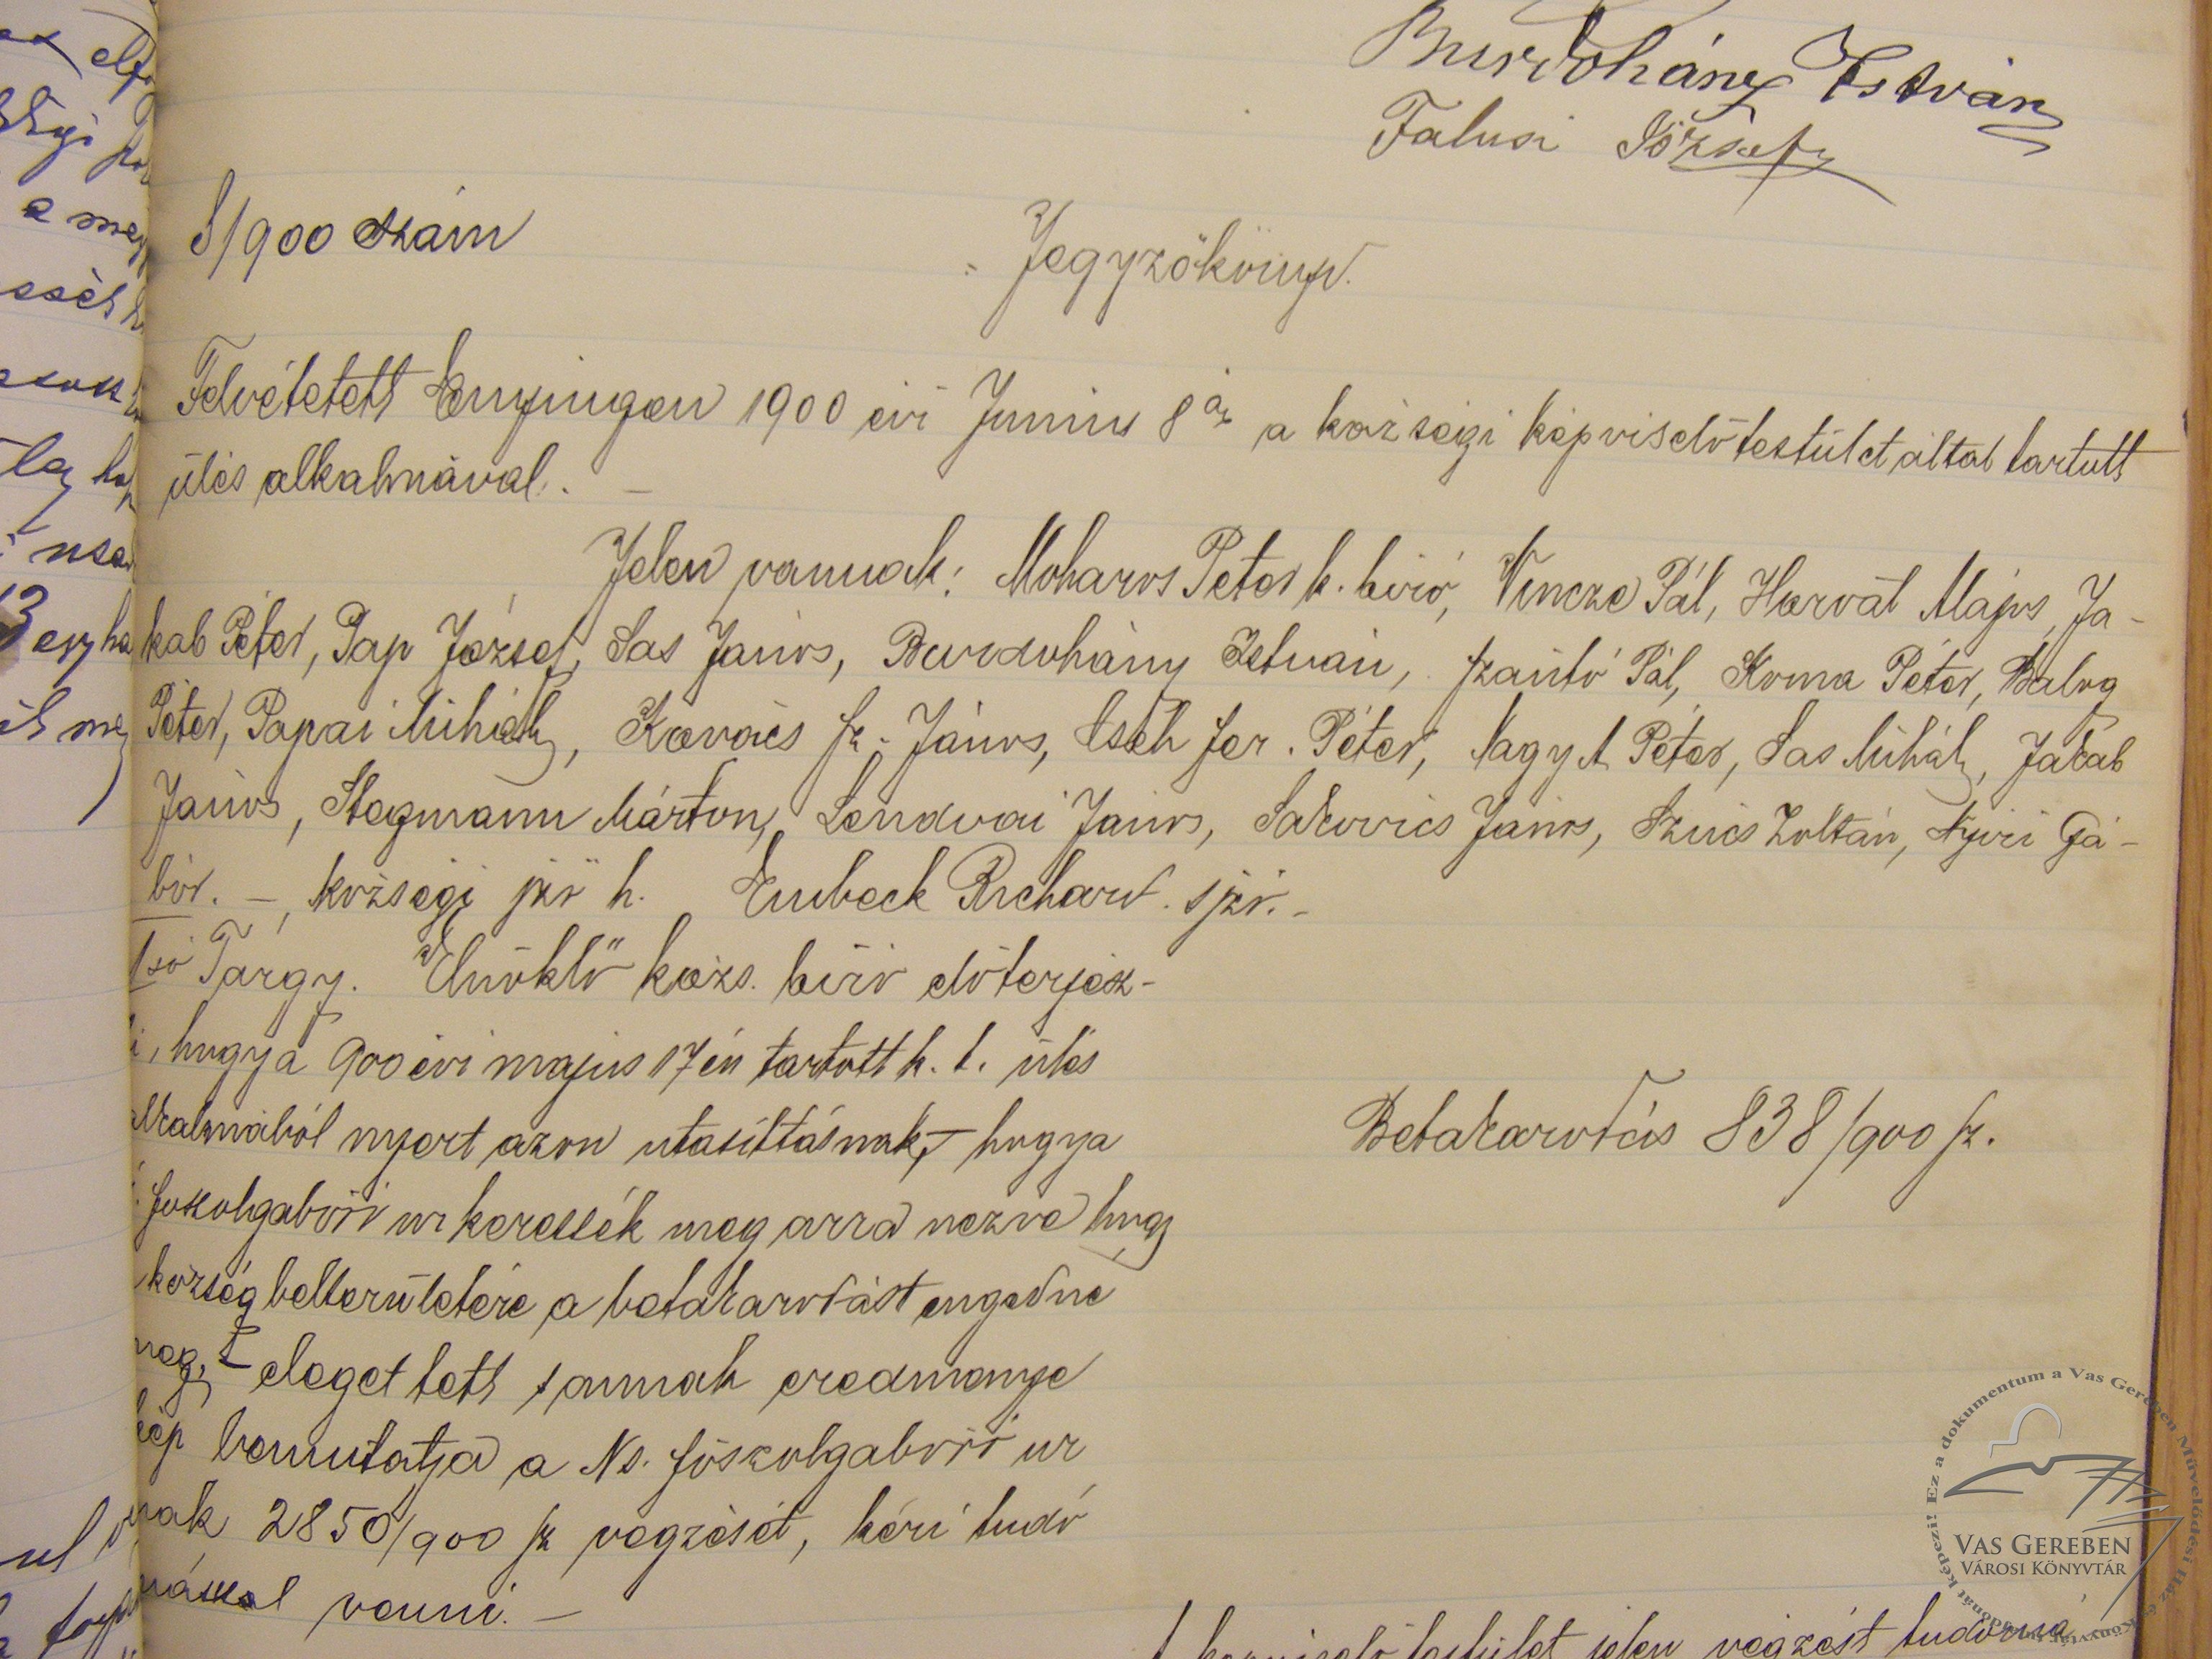 Burdohány István
Falusi József
8/900 szám
Jegyzőkönyv.
Felvétetett Enyingen 1900 évi Junius 8án a községi képviselőtestület által tartott
ülés alkalmával. –
Jelen vannak: Moharos Péter k. biró, Vincze Pál, Horvát Májos, Ja-
kab Péter, Pap József, Sas János, Burdohány István, szántó Pál, Koma Péter, Balog
Péter, Papai Mihály, Kovács sz. János, Cseh fer. Péter, Nagy A Péter, Sas Mihály, Jakab
János, Stegmann Márton, Lendvai János, Sakovics János, Szücs Zoltán, Nyiri Gá-
bor. –, községi jző h. Embeck Richard. sjző. –
1ső Tárgy. Elnöklő közs. biró előterjesz-
ti, hogy a 900 évi majus 17én tartott k. t. ülés
alkalmából nyert azon utasittásnak, – hogy a
főszolgabiró ur keressék meg arra nezve hogy
község belterületére a betakarodást engedne
meg, – eleget tett s annak eredménye
kép bemutatja a Ns. főszolgabiró ur
nak 2850/900 sz végzését, kéri tudo
mással venni. –
Betakarodás 838/900 sz.
A képviselő testület jelen végzést tudomá
Ez a dokumentum a Vas Gereben Művelődési Ház és Könyvtár tulajdonát képezi!
VAS GEREBEN
VÁROSI KÖNYVTÁR